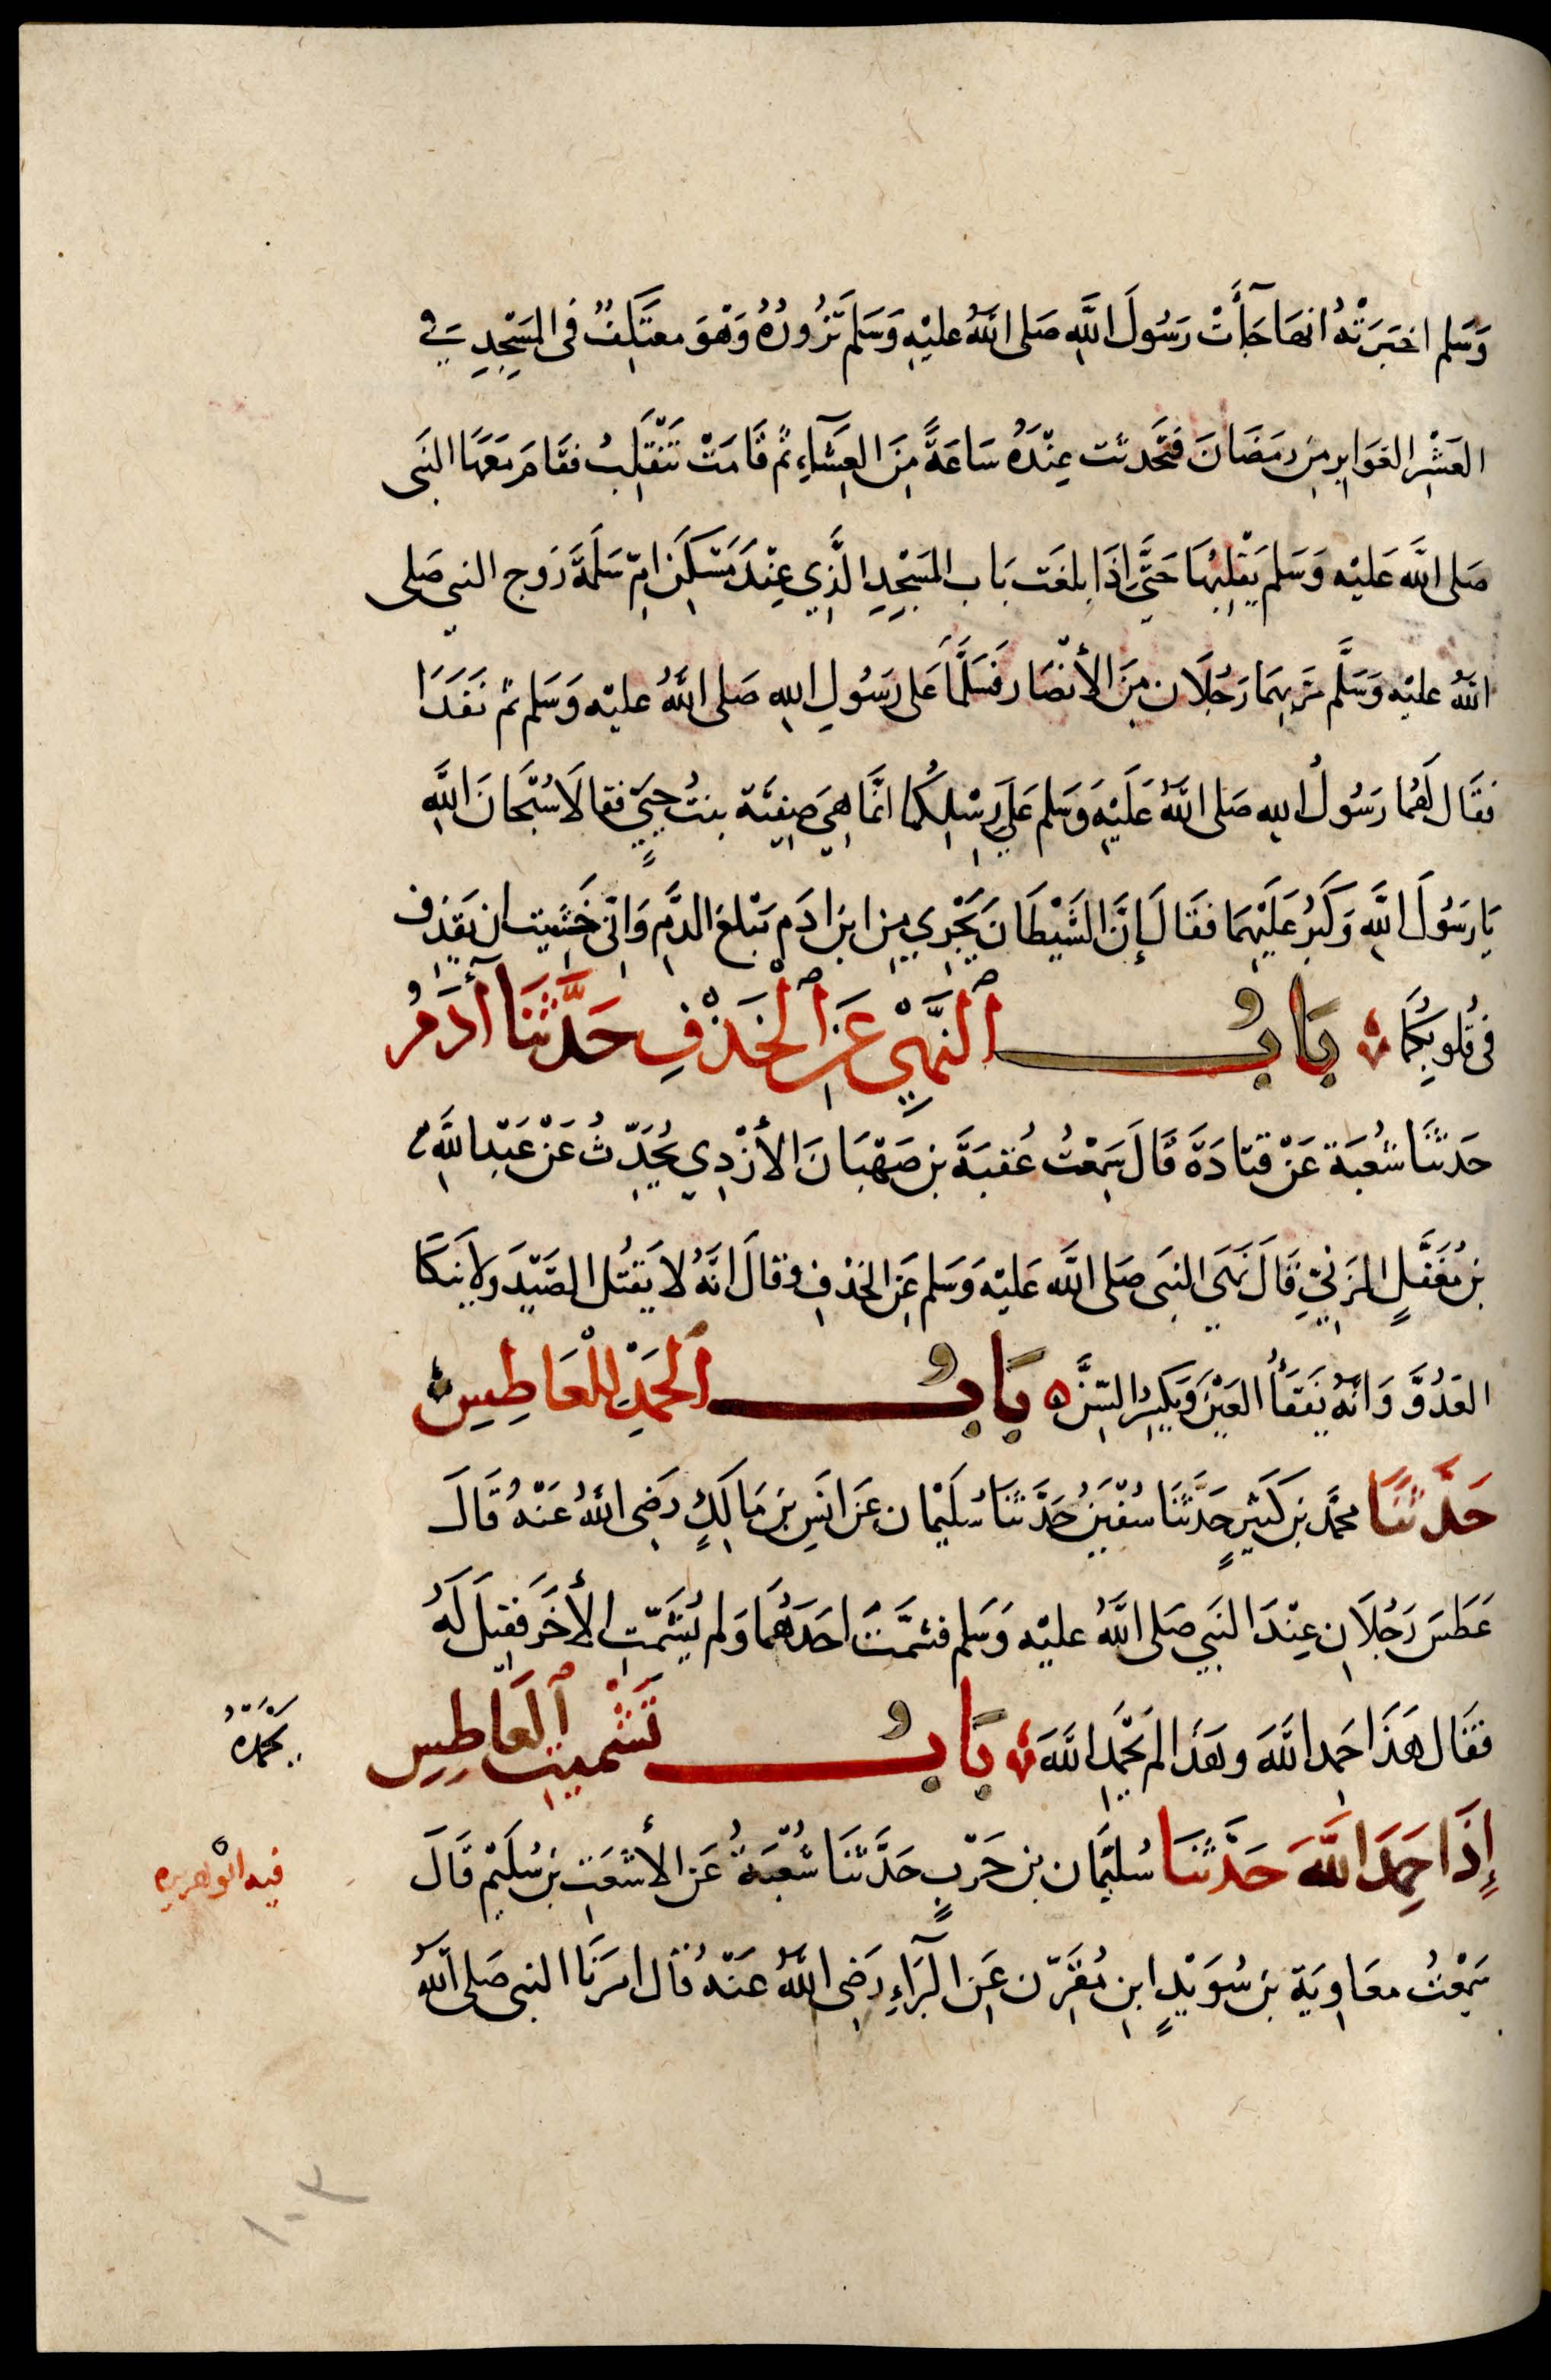 وَسَلم اخبَرَتْهُ انها جَآءَتْ رَسُولَ اللَّهِ صَلى اللَّهُ عليْهِ وَسَلَم تَزُورُهُ وَهْوَ معتَكِفٌ فى المَسْجِدِ فِي
العَشْرِ الغَوَابِرِ مِن رَمَضَانَ فتَحَدثَت عِنْدَهُ سَاعَةً مِنَ العِشَآءِ ثمّ قَامَتْ تَنْقَلِبُ فقَامَ مَعَهَا النبَى
صَلى اللَّه عَليْه وَسَلم يَقْلِبُهَا حَتَّى اِذَا بلغَت بَاب المَسْجِدِ الَّذِي عِنْدَ مَسْكَنِ امّ سَلَمَةَ زَوج النبي صَلى
اللهُ عليْه وَسَلَّم مَرّ بِهِمَا رَجُلَان مِنَ الأنْصَار فَسَلَّمَا عَلى رَسُولِ اللهِ صَلى اللَّهُ عليْه وَسَلم ثم نَفَذَا
فقَال لَهُما رَسُولُ الله صَلى اللَّهُ عَلَيْهِ وَسَلم عَلَى رِسْلِكُما انَّمَا هِيَ صَفِيَّة بنتُ حُيَيٍّ فقالَا سُبْحَانَ اللَّهِ
يَا رَسُولَ اللَّهِ وَكَبُرَ عَلَيْهِمَا فقَالَ إنَّ الشَّيْطَانَ يَجْرِي مِن ابن ادَم مَبْلغ الدَّمِ وَانّى خَشِيت ان يَقذِف
فى قُلوبِكُمَا بَابُ ٱلنَّهْيِ عَنِ ٱلْخَذْفِ حَدَّثَنَا آدَمُ
حَدثنَا شُعْبَة عَنْ قتادَةَ قَالَ سَمِعْتُ عُقبَةَ بن صَهْبَانَ الأَزْدِي يُحَدِّثُ عَنْ عَبْدِ اللَّهِ
بن مُغَفَّلٍ المزَنيِّ قَالَ نَهَى النبَى صَلى اللَّه عَليْهِ وَسَلم عَنِ الخذفِ وقالَ انَّهُ لا يَقْتُل الصَّيْدَ ولا يَنكَا
العَدُوَّ وَانَّهُ يَفقَأُ العَيْنَ وَيَكسِرُ السِّنَّ ه بَابُ ٱلحَمْدِ لِلْعَاطِسِ
حَدَّثنَا محمَّد بن كَثِيرٍ حَدَّثَنَا سُفْيَنُ حَدَّثنَا سُلَيْمان عَن انَسِ بن مَالِكٍ رَضِى اللَّهُ عَنْهُ قَالَ
عَطَسَ رَجُلَانِ عِنْدَ النبَي صَلى اللَّهُ عليْه وَسَلم فشمَّتَ احَدَهُمَا وَلم يُشَمِّتِ الأخَرَ فقِيلَ لَهُ
فقَال هَذَا حَمِد اللَّهَ وهَذَا لم يَحْمَدِ اللَّهَ بَابُ تَشْمِيتِ ٱلعَاطِسِ
يحمَدهُ
إِذَا حَمِدَ اللَّهَ حَدَّثنَا سُليْمَان بن حَرْبٍ حَدَّثنَا شُعْبَةُ عَن الأشعَثِ بن سُلَيْمٍ قَالَ
فيه ابوهريره
سَمِعْتُ معَاوِيَة بن سُوَيْدٍ ابنِ مُقَرِّن عَنِ البَرَآءِ رَضِى اللَّهُ عَنْهُ قَال امرَنَا النبى صَلى اللَّهُ
١٠٣